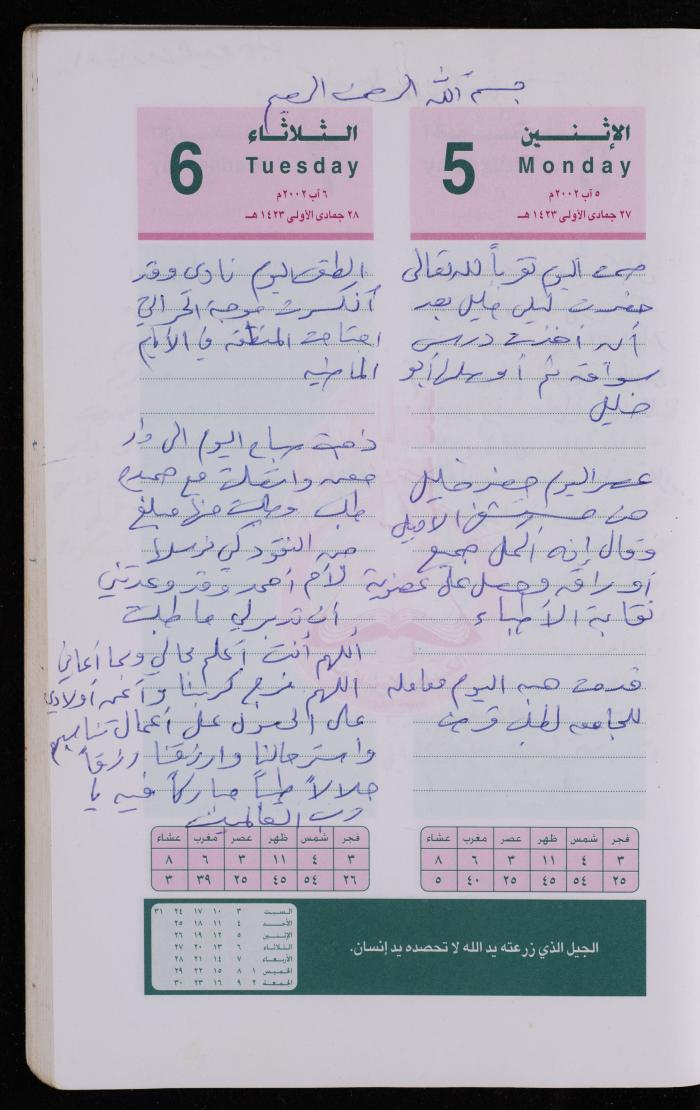 بسم الله الرحمن الرحيم
الإثنين
Monday
5
٥ آب ٢٠٠٢م
٢٧ جمادى الأولى ١٤٢٣ هـ
صمت اليوم تقرباً لله تعالى
حضرت ليلى خليل بعد
أن أخذت درس
سواقه ثم أوصلها أبو
خليل
عصر اليوم حضر خليل
من الأصيل
وقال إنه أكمل جميع
أوراقه وحصل على عضوية
نقابة الأطباء
قدمت هبه اليوم معامله
للجامعه لطلب قرض
الثلاثاء
Tuesday
6
٦ آب ٢٠٠٢م
٢٨ جمادى الأولى ١٤٢٣ هـ
الطقس اليوم نادى وقد
أنكسرت موجة الحر التي
اجتاحت المنطقه في الأيام
الماضيه
ذهبت صباح اليوم الى دار
مع
طلب وطلبت منها مبلغ
من النقود كي نرسلها
لأم أحمد وقد وعدتني
أن تدبر لي ما طلبت
اللهم أنت أعلم بحالي وبما أعاني
اللهم فرج كربنا وأعن أولادي
على الحصول على أعمال تناسبهم
واستر حالنا وارزقنا رزقاً
حلالاً طيباً مباركاً فيه يا
رب العالمين
فجر شمس ظهر عصر مغرب عشاء
٣ ٤ ١١ ٣ ٦ ٨
٢٥ ٥٤ ٤٥ ٢٥ ٤٠ ٥
فجر شمس ظهر عصر مغرب عشاء
٣ ٤ ١١ ٣ ٦ ٨
٢٦ ٥٤ ٤٥ ٢٥ ٣٩ ٣
الجيل الذي زرعته يد الله لا تحصده يد إنسان.
السبت ٣ ١٠ ١٧ ٢٤ ٣١
الأحد ٤ ١١ ١٨ ٢٥
الإثنين ٥ ١٢ ١٩ ٢٦
الثلاثاء ٦ ١٣ ٢٠ ٢٧
الأربعاء ٧ ١٤ ٢١ ٢٨
الخميس ١ ٨ ١٥ ٢٢ ٢٩
الجمعة ٢ ٩ ١٦ ٢٣ ٣٠